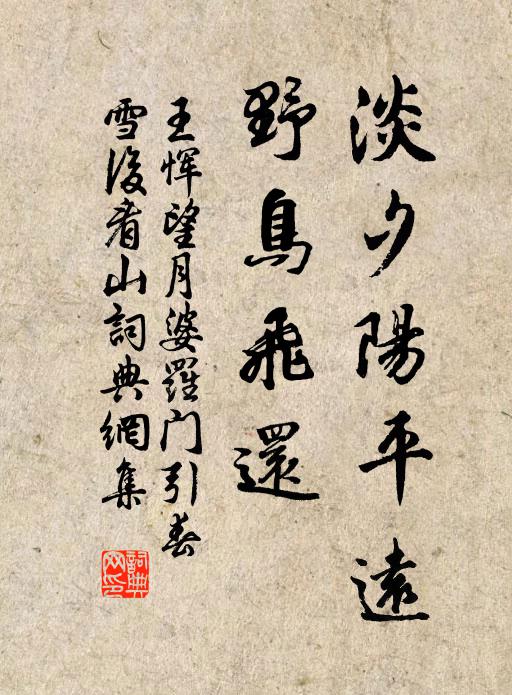 淡夕陽平遠
野鳥飛還
王惲望月婆羅门引春
雪後看山詞典網集
詞典网印